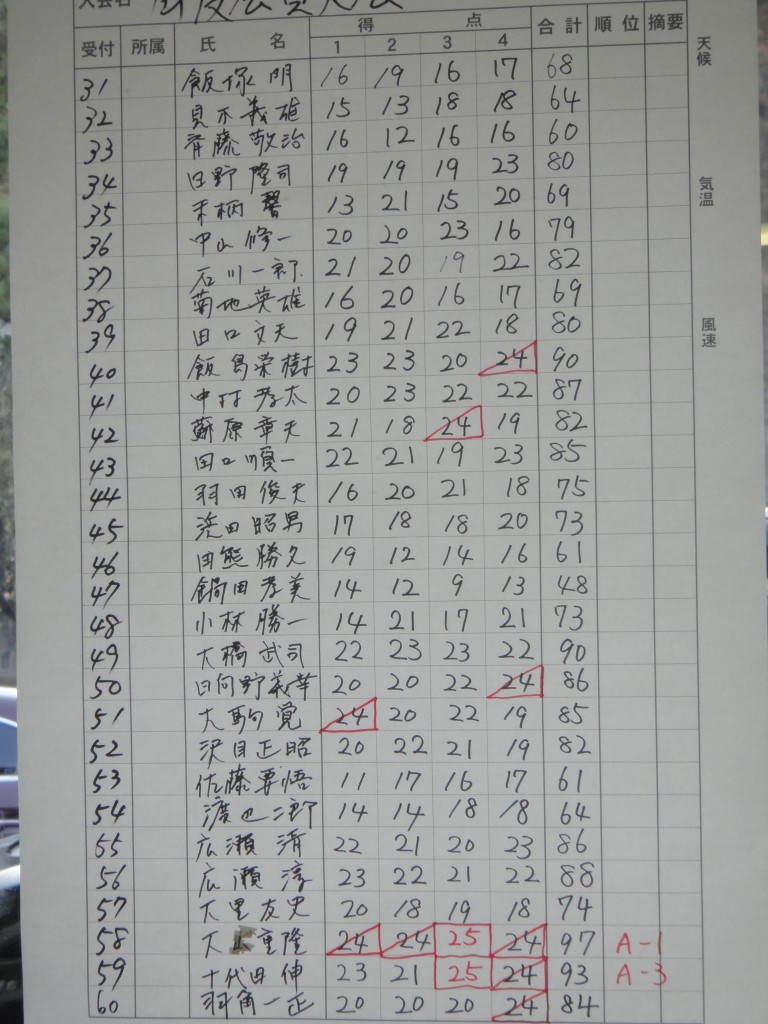 大会名
得 点
受付 所属 氏 名 1 2 3 4 合計 順位 摘要
天候
気温
風速
31 飯塚 明 16 19 16 17 68
32 貝木義雄 15 13 18 18 64
33 斉藤敬治 16 12 16 16 60
34 日野隆司 19 19 19 23 80
35 13 21 15 20 69
36 中山修一 20 20 23 16 79
37 石川一郎 21 20 19 22 82
38 菊地英雄 16 20 16 17 69
39 田口文夫 19 21 22 18 80
40 飯島栄樹 23 23 20 24 90
41 中村孝太 20 23 22 22 87
42 蘇原章夫 21 18 24 19 82
43 田口順一 22 21 19 23 85
44 羽田俊夫 16 20 21 18 75
45 浜田昭男 17 18 18 20 73
46 田熊勝久 19 12 14 16 61
47 鍋田孝美 14 12 9 13 48
48 小林勝一 14 21 17 21 73
49 大橋武司 22 23 23 22 90
50 日向野義幸 20 20 22 24 86
51 大駒覚 24 20 22 19 85
52 沢目正昭 20 22 21 19 82
53 佐藤要悟 11 17 16 17 61
54 渡辺二郎 14 14 18 18 64
55 広瀬 清 22 21 20 23 86
56 広瀬 淳 23 22 21 22 88
57 大里友男 20 18 19 18 74
58 大山重隆 24 24 25 24 97 A-1
59 十代田伸 23 21 25 24 93 A-3
60 羽角一正 20 20 20 24 84